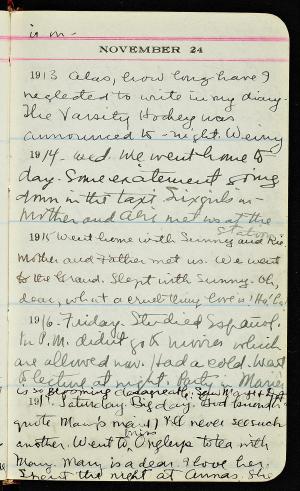 is in -
NOVEMBER 24
1913 Alas, how long have I
neglected to write in my diary.
The Varsity Hockey was
announced to-night. We
1914. Wed. We went home to
day. Some excitement going
down in the taxi. Six girls in -
Mother and met us at the
station
1915 Went home with Sunny and
Mother and Father met us. We went
to the Grand. Slept with Sunny. Oh,
dear, what a cruel thing love is! Ha! Ha!
1916. Friday. Studied Español.
In P.M. didn't go to movies which
are allowed now. Had a cold. Went
to lecture at night. Party in
is so blooming
191 Saturday. Big day.
quote never see such
another. Went to Miss to tea with
Mary. Mary is a dear. I love her.
Spent the night at Anna's. She